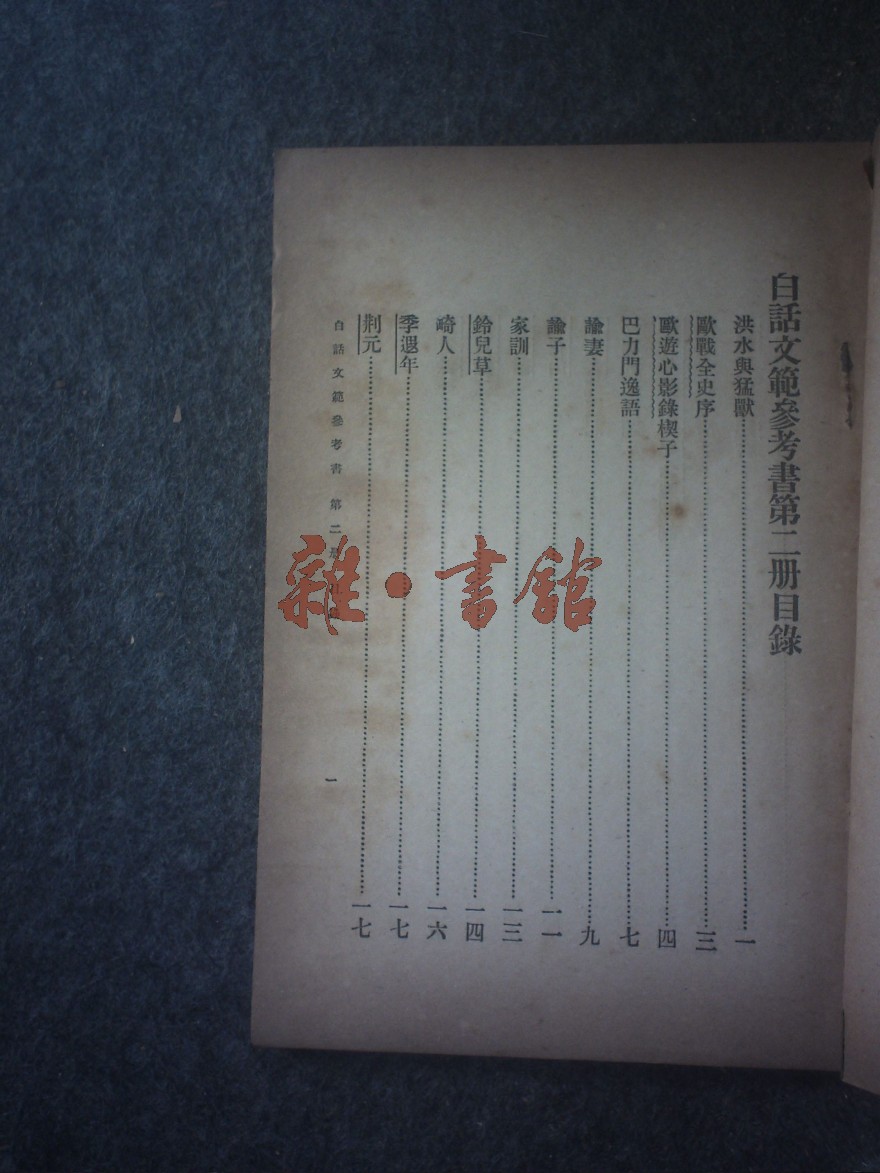 白話文範參考書第二册目錄
洪水與猛獸……一
歐戰全史序……三
歐遊心影錄楔子……四
巴力門逸語……七
諭妻……九
諭子……一一
家訓……一三
鈴兒草……一四
畸人……一六
季遐年……一七
荆元……一七
白話文範參考書 第二
一
雜·書館